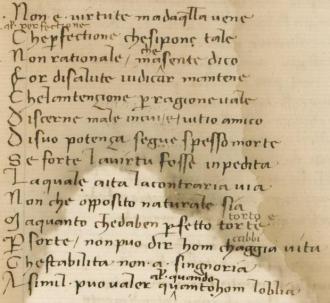 Non e virtute ma da qlla vene
al: perfectione
Che pfectione che si pone tale
Non rationale ma che sente dico
For di salute iudicar mantene
Che la ntençione p ragione vale
Discerne male in cui e vitio amico
Di suo potença segue spesso morte
Se forte la virtu fosse inpedita
La quale aita la contraria via
Non che opposito naturale sia
torto e
Ma quanto che da ben pfetto torte
P sorte non puo dir hom chaggia vita
cabbi
Che stabilita non a singnoria
al: quando
A simil puo valer quanto hom loblia